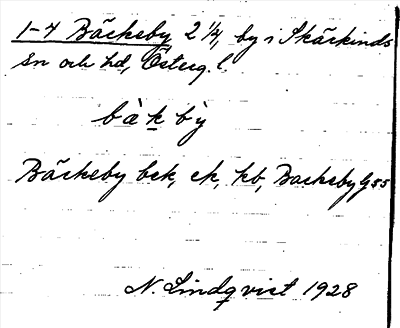 1-4 Bäckeby 2 1/4, by i Skärkinds
sn och hd, Österg. l.
bàkbỳ
Bäckeby bek, ek, kb, Backeby Gss
N. Lindqvist 1928